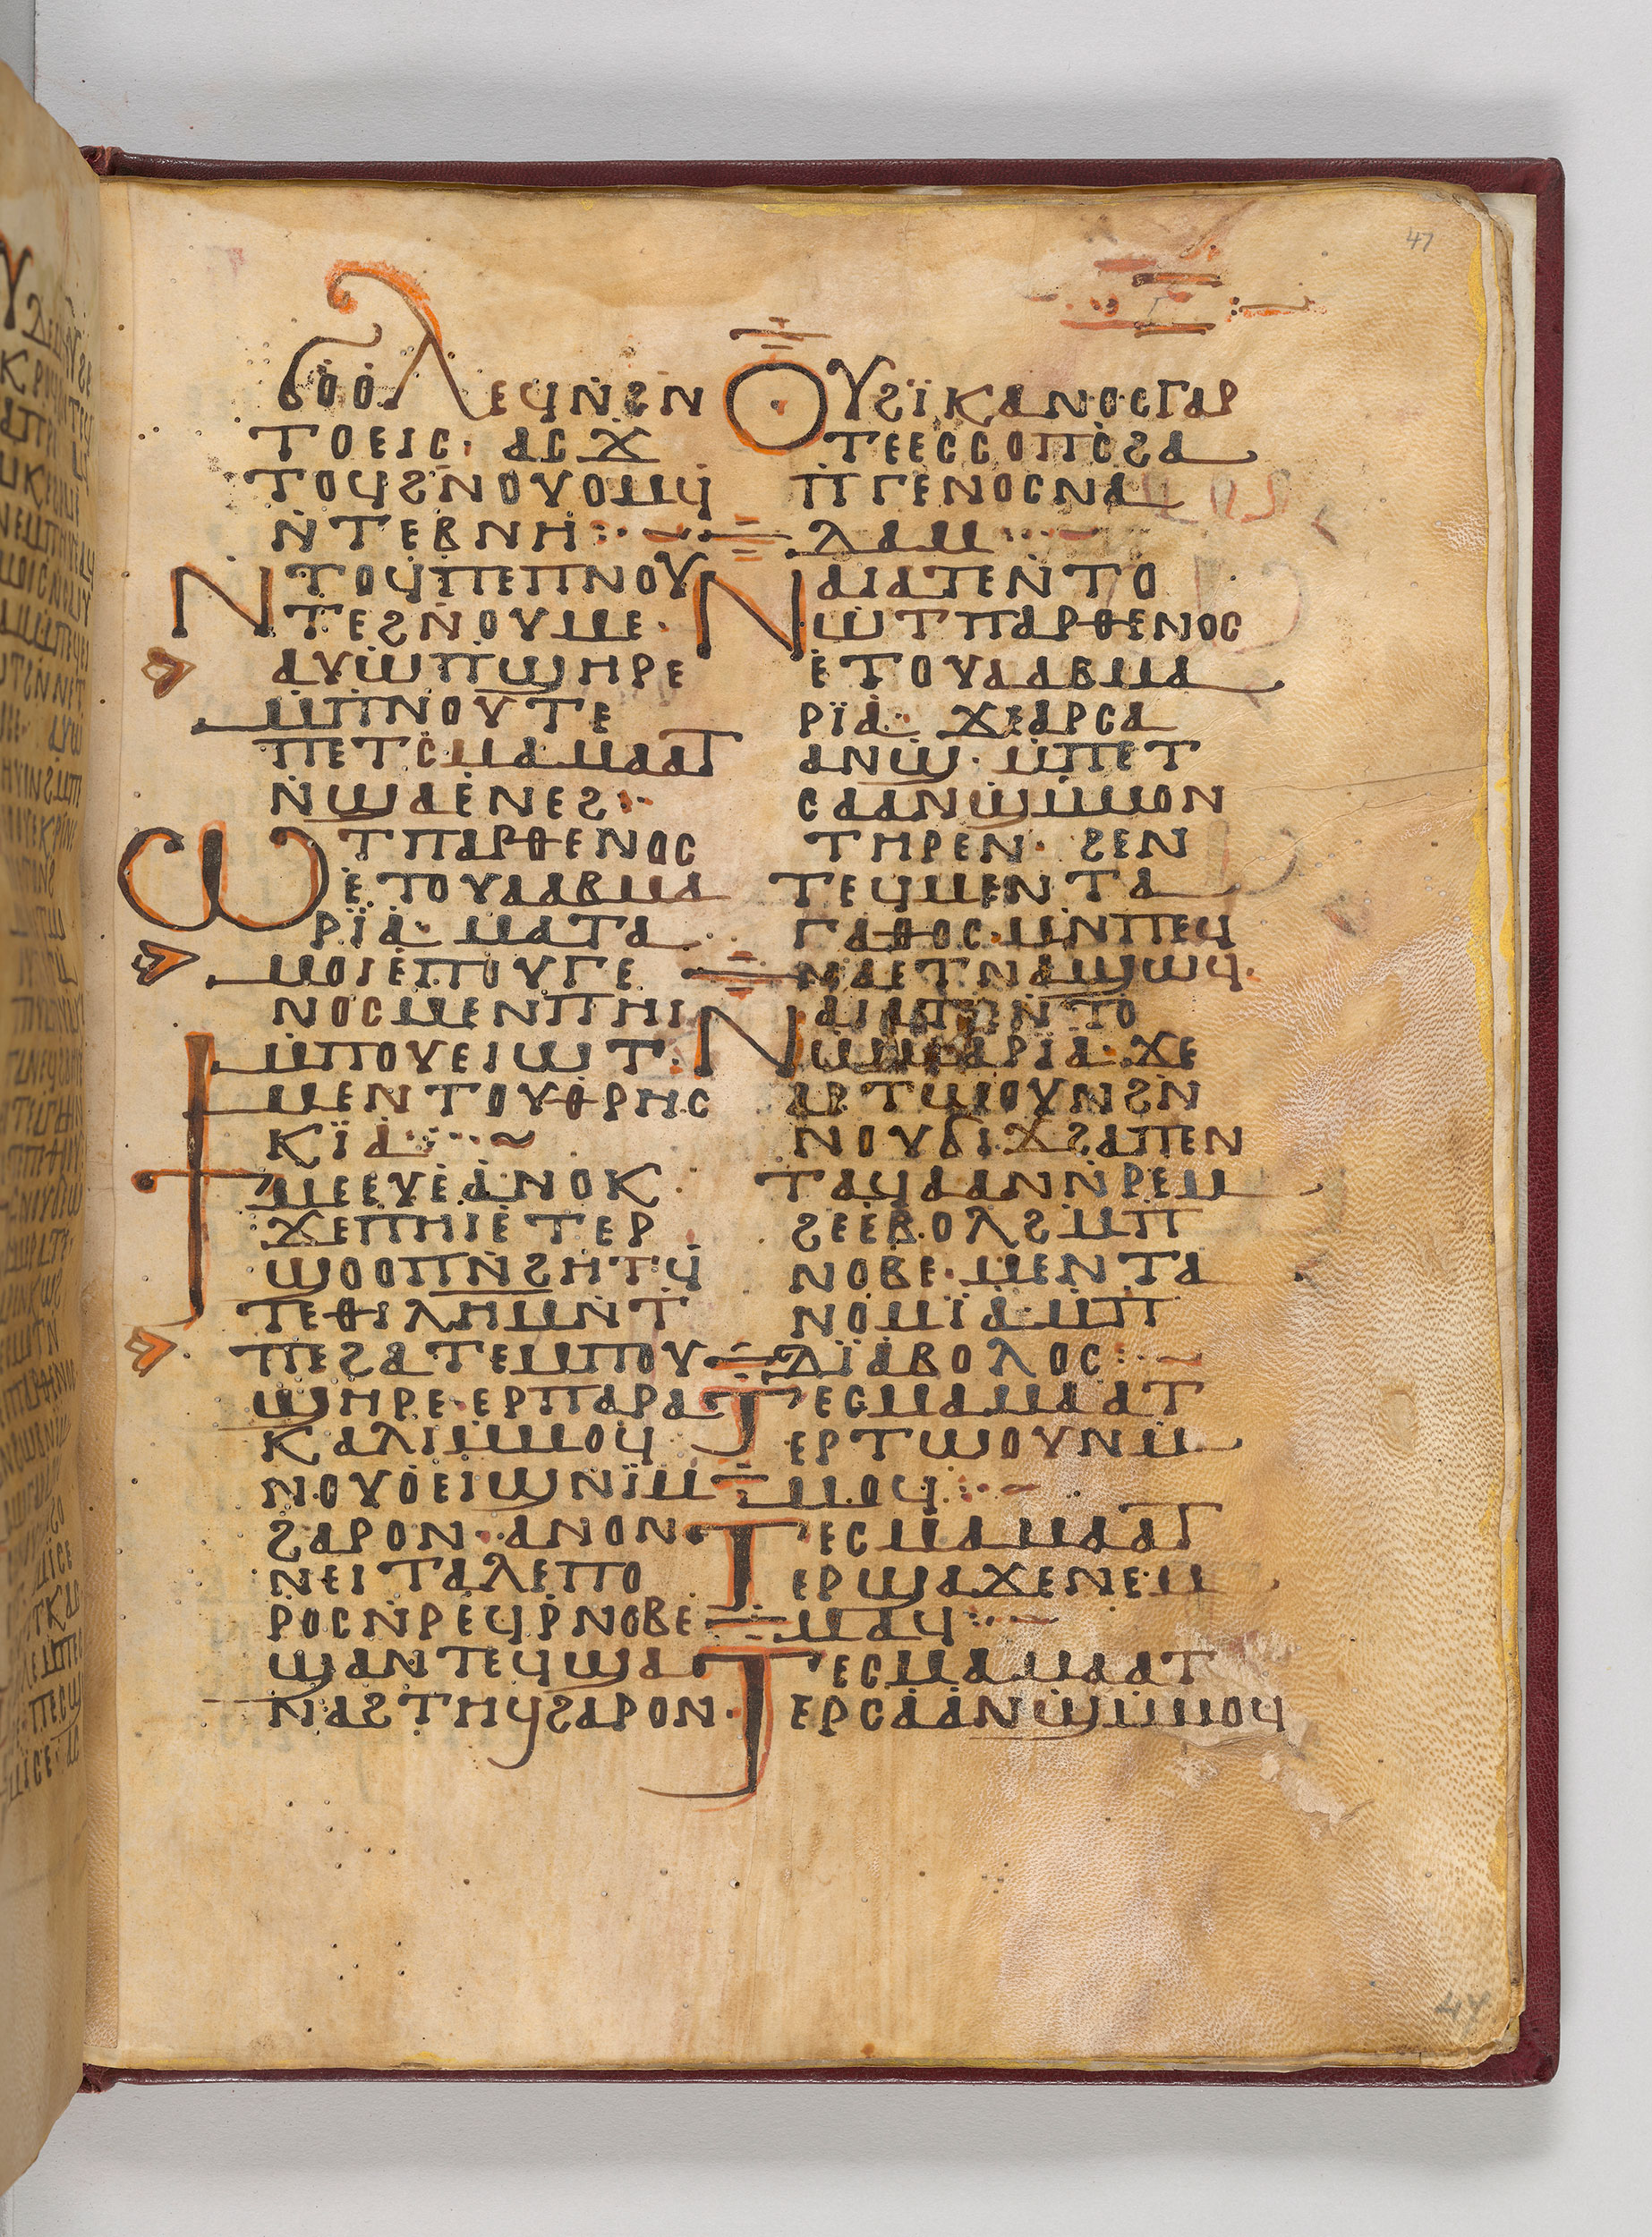 47
ϭⲟⲟⲗⲉϥⲛ̇ϩⲛ
ⲧⲟⲉⲓⲥ· ⲁⲥϫ
ⲧⲟϥϩⲛⲟⲩⲟⲙϥ̇
ⲛ̇ⲧⲉⲃⲛⲏ:·~
ⲛ̇ⲧⲟϥⲡⲉⲡⲛⲟⲩ
ⲧⲉϩⲛ̇ⲟⲩⲙⲉ·
ⲁⲩⲱⲡ̇ϣⲏⲣⲉ
ⲙ̇ⲡⲛⲟⲩⲧⲉ
ⲡⲉⲧⲥ̇ⲙⲁⲙⲁⲁⲧ
ⲛ̇ϣⲁⲉ̇ⲛⲉϩ:·
ⲱⲧⲡⲁⲣⲑⲉⲛⲟⲥ
ⲉ̇ⲧⲟⲩⲁⲁⲃⲙⲁ
ⲣⲓ̈ⲁ· ⲙⲁⲧⲁ
ⲙⲟⲓⲉ̇ⲡⲟⲩⲅⲉ
ⲛⲟⲥⲙⲉⲛⲡⲏⲓ
ⲙ̇ⲡⲟⲩⲉⲓⲱⲧ·
ⲙⲉⲛⲧⲟⲩⲑⲣⲏⲥ
ⲕⲓ̈ⲁ:·~
ϯⲙⲉⲉⲩⲉ̇ⲁ̇ⲛⲟⲕ
ϫⲉⲡⲏⲓⲉ̇ⲧⲉⲣ
ϣⲟⲟⲡⲛ̇ϩⲏⲧϥ̇
ⲧⲉⲑⲓⲗⲏⲙⲛ̇ⲧ
ⲡⲉϩⲁⲧⲉⲙⲡⲟⲩ
ϣⲏⲣⲉ·ⲉⲣⲡⲁⲣⲁ
ⲕⲁⲗⲓⲙ̇ⲙⲟϥ
ⲛⲟⲩⲟ̇ⲉⲓϣⲛⲓ̈ⲙ
ϩⲁⲣⲟⲛ·ⲁⲛⲟⲛ
ⲛⲉⲓⲧⲁⲗⲉⲡⲟ
ⲣⲟⲥⲛ̇ⲣⲉϥⲣ̇ⲛⲟⲃⲉ
ϣⲁⲛⲧⲉϥϣⲁ
ⲛⲁϩⲧⲏϥϩⲁⲣⲟⲛ·
ⲟⲩϩⲓ̈ⲕⲁⲛⲟⲥⲅⲁⲣ
ⲧⲉⲉⲥⲥⲟⲡⲥ̇ϩⲁ
ⲡⲅⲉⲛⲟⲥⲛⲁ
ⲇⲁⲙ:·~
ⲛⲁⲓⲁⲧⲉⲛ̇ⲧⲟ
ⲱ̇ⲧⲡⲁⲣⲑⲉⲛⲟⲥ
ⲉ̇ⲧⲟⲩⲁⲁⲃⲙⲁ
ⲣⲓ̈ⲁ· ϫⲉⲁⲣⲥⲁ
ⲁⲛϣ·ⲙ̇ⲡⲉⲧ
ⲥⲁⲁⲛϣ̇ⲙ̇ⲙⲟⲛ
ⲧⲏⲣⲉⲛ· ϩⲉⲛ
ⲧⲉϥⲙⲉⲛⲧⲁ
ⲅⲁⲑⲟⲥ·ⲙⲛ̇ⲡⲉϥ
ⲛⲁⲉⲧⲛⲁϣⲱϥ·
ⲛⲁⲓⲁⲧⲉⲛ̇ⲧⲟ
ⲱ̇ⲙⲁⲣⲓ̈ⲁ·ϫⲉ
ⲁⲣⲧⲱⲟⲩⲛϩⲛ
ⲛⲟⲩϭⲓϫϩⲁⲡⲉⲛ
ⲧⲁϥⲁⲁⲛⲛ̇ⲣⲉⲙ
ϩⲉⲉ̇ⲃⲟⲗϩⲙⲡ
ⲛⲟⲃⲉ·ⲙⲉⲛⲧⲁ
ⲛⲟⲙⲓ̈ⲁ·ⲙⲡ
ⲇⲓ̈ⲁⲃⲟⲗⲟⲥ:·~
ⲧⲉⲥⲙⲁⲙⲁⲁⲧ
ⲉⲣⲧⲱⲟⲩⲛⲙ̇
ⲙⲟϥ:·~
ⲧⲉⲥⲙⲁⲙⲁⲁⲧ
ⲉⲣϣⲁϫⲉⲛⲉⲙ
ⲙⲁϥ:·~
ⲧⲉⲥⲙⲁⲙⲁⲁⲧ
ⲉⲣⲥⲁⲁⲛϣ̇ⲙ̇ⲙⲟϥ